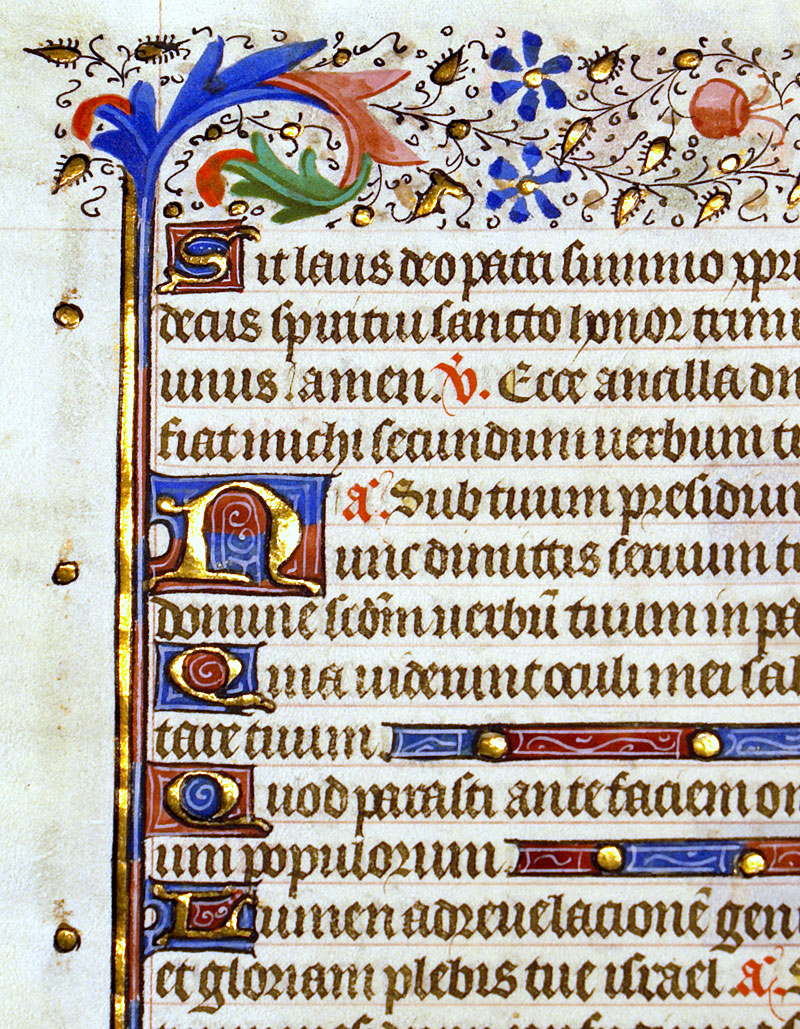 Sit laus deo patri summo xpi
decus spiritui sancto honor trini
unus amen. v. Ecce ancilla dn
fiat michi secundum uerbum tu
a. Sub tuum presidium
Nunc dimittis seruum tu
domine scdm uerbū tuum in pa
Quia uiderunt oculi mei sal
tare tuum
Quod parasti ante faciem om
um populorum
Lumen ad reuelacionē gen
et gloriam plebis tue israel a. S